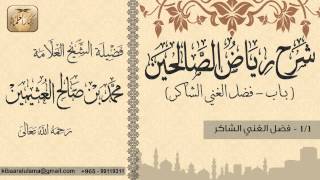 شرح رياض الصالحين
(باب - فضل الغني الشاكر)
1/1 - فضل الغني الشاكر
فضيلة الشيخ العلامة
محمد بن صالح العثيمين
رحمه الله تعالى
+965 - 99119311